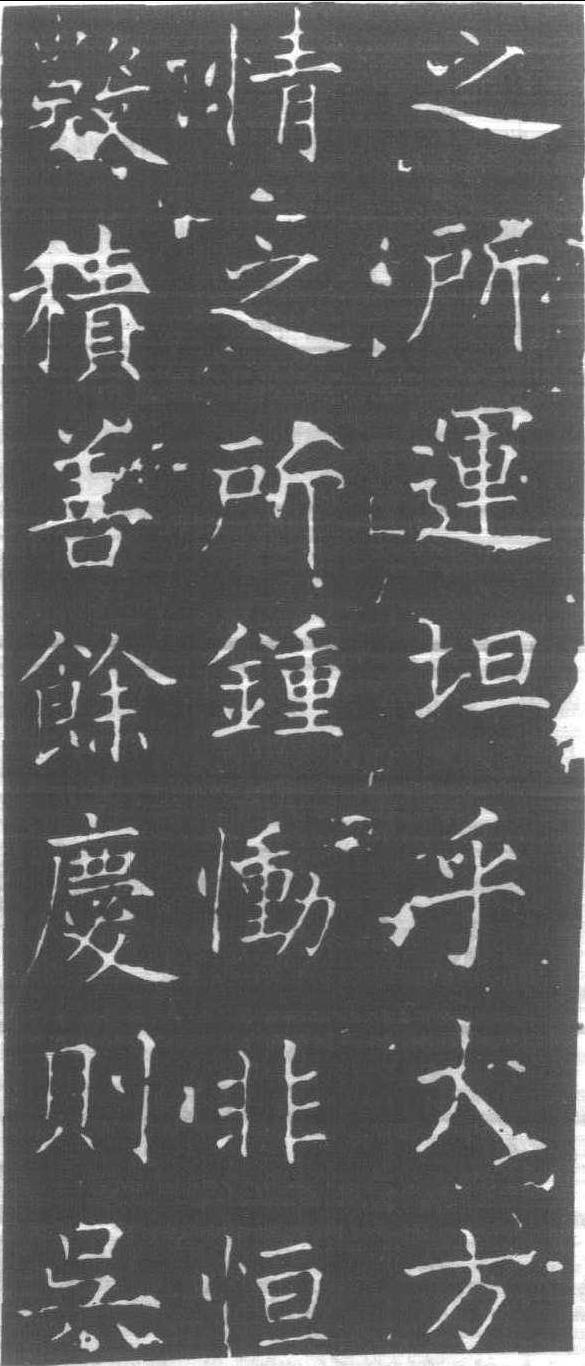 之所運坦乎大方
情之所鍾慟非恒
發積善餘慶則吳